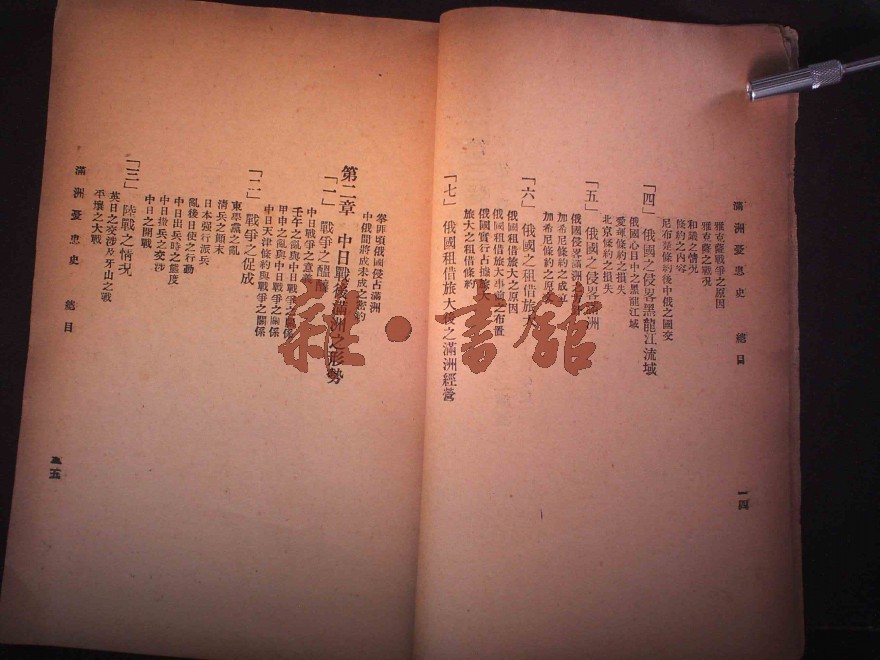 滿洲憂患史 總目
一四
雅克薩戰爭之原因
雅克薩之戰況
和議之情況
條約之內容
尼布楚條約後中俄之國交
「四」 俄國之侵畧黑龍江流域
俄國心目中之黑龍江域
愛琿條約之損失
北京條約之損失
「五」 俄國之侵畧滿洲
俄國侵畧滿洲之
加希尼條約之成立
加希尼條約之原文
「六」 俄國之租借旅大
俄國租借旅大之原因
俄國租借旅大事前之布置
俄國實行占據旅大
旅大之租借條約
「七」 俄國租借旅大後之滿洲經營
拳匪頃俄國侵占滿洲
中俄間將成未成之密約
第二章 中日戰後滿洲之形勢
「一」 戰爭之醞釀
中日戰爭之意義
壬午之亂與中日戰爭之關係
甲申之亂與中日戰爭之關係
中日天津條約與戰爭之關係
「二」 戰爭之促成
東學黨之亂
清兵之顚末
日本强行派兵
亂後日使之行動
中日出兵時之態度
中日撤兵之交涉
中日之開戰
「三」 陸戰之情況
英日之交涉及牙山之戰
平壤之大戰
滿洲憂患史 總目
一五
雜·書館